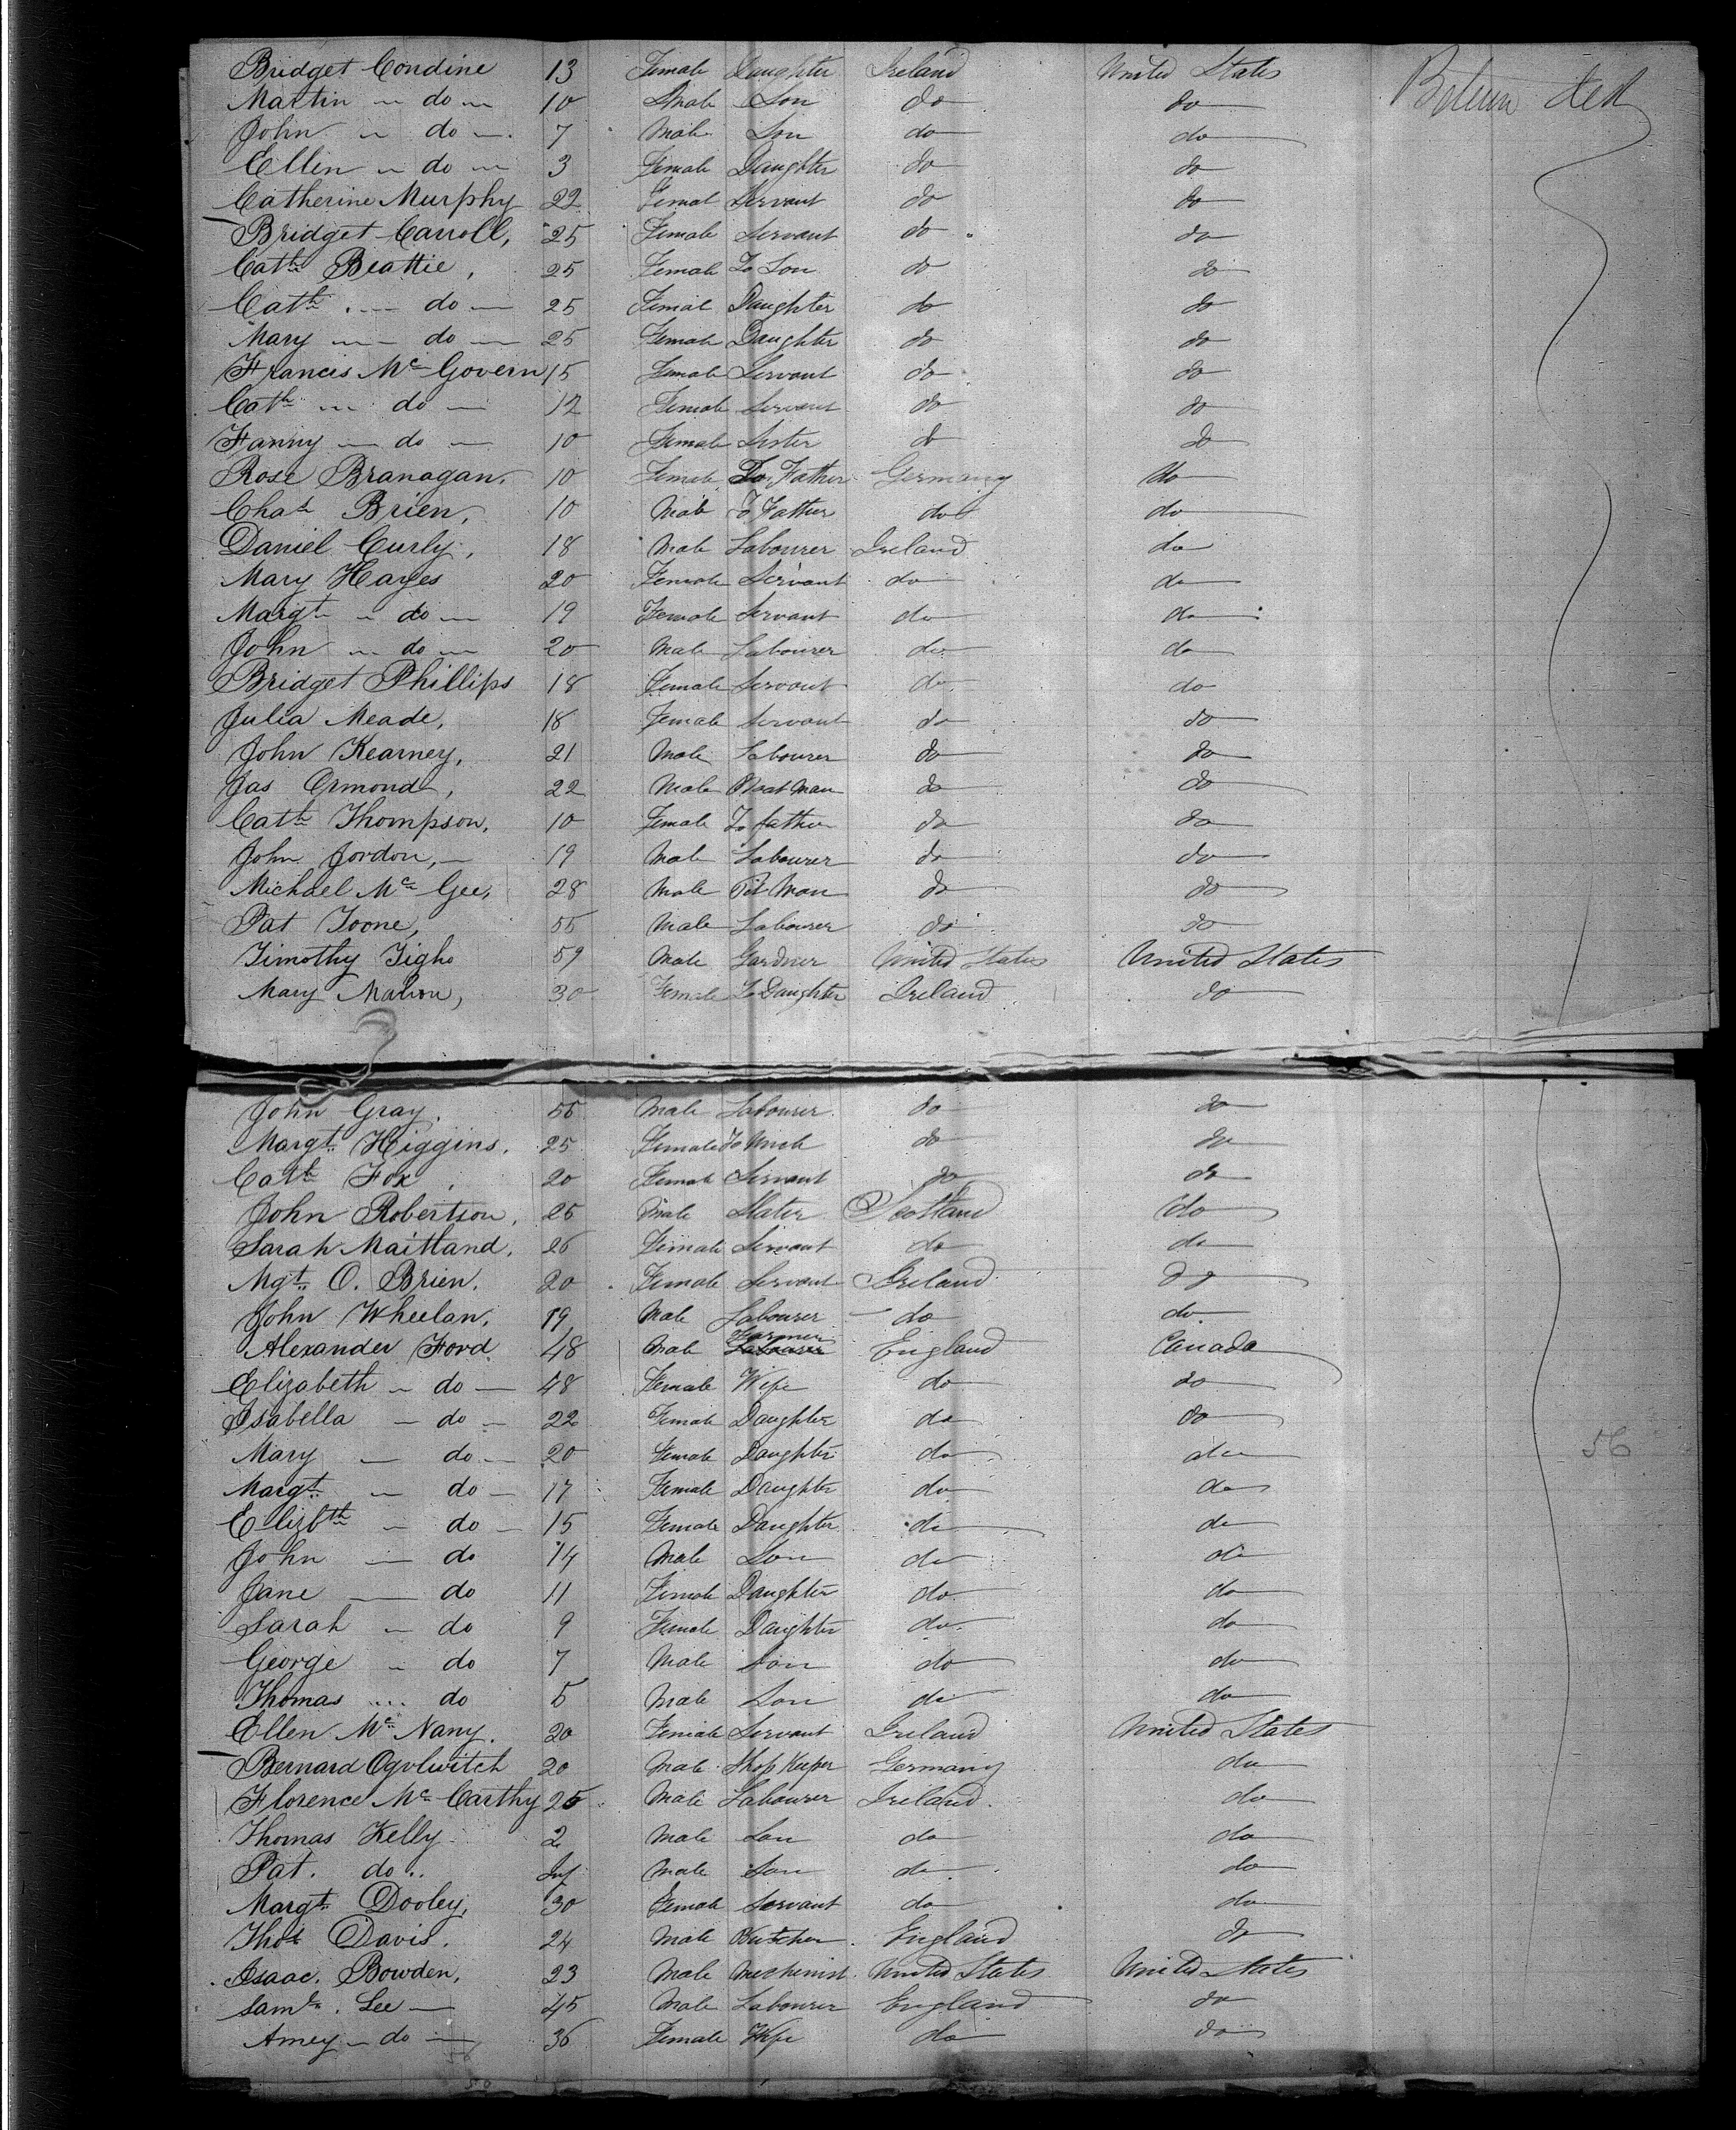 Bridget Condine 13 Female Daughter Ireland United States Between deck
Martin do 10 Male Son do do
John do 7 Male Son do do
Ellin do 3 Female Daughter do do
Catherine Murphy 22 Female Servant do do
Bridget Carroll, 25 Female Servant do do
Cath Beattie, 25 Female To Son do do
Cath do 25 Female Daughter do do
Mary do 25 Female Daughter do do
Francis Mc Govern 15 Female Servant do do
Cath do 12 Female Servant do do
Fanny do 10 Female Sister do do
Rose Branagan. 10 Female To Father Germany do
Chas Brien, 10 Male To Father do do
Daniel Curly, 18 Male Labourer Ireland do
Mary Hayes 20 Female Servant do do
Margt do 19 Female Servant do do
John do 20 Male Labourer do do
Bridget Phillips 18 Female Servant do do
Julia Meade, 18 Female Servant do do
John Kearney, 21 Male Labourer do do
Jas Ormond, 22 Male Boat Man do do
Cath Thompson, 10 Female To father do do
John Jordon, 19 Male Labourer do do
Michael Mc Gee, 28 Male Pit Man do do
Pat Toone, 55 Male Labourer do do
Timothy Tighe 59 Male Gardner United States United States
Mary Mahon, 30 Female To Daughter Ireland do
John Gray. 56 Male Labourer do do
Margt Higgins. 25 Female To do do
Cath Fox 20 Female Servant do do
John Robertson, 26 Male Slater Scotland do
Sarah Maitland. 26 Female Servant do do
Mgt. O. Brien. 20 Female Servant Ireland do
John Wheelan, 19 Male Labourer do do
Alexander Ford 48 Male Farmer England Canada
Elizabeth do 48 Female Wife do do
Isabella do 22 Female Daughter do do
Mary do 20 Female Daughter do do
Margt. do 17 Female Daughter do do
Elizbth do 15 Female Daughter do do
John do 14 Male Son do do
Jane do 11 Female Daughter do do
Sarah do 9 Female Daughter do do
George do 7 Male Son do do
Thomas do 5 Male Son do do
Ellen Mc Nany. 20 Female Servant Ireland United States
Bernard 20 Male Shop Keeper Germany do
Florence Mc Carthy 25 Male Labourer Ireland do
Thomas Kelly 2 Male Son do do
Pat. do Inf Male Son do do
Margt Dooley, 30 Female Servant do do
Thos Davis. 24 Male Butcher England do
Isaac. Bowden, 23 Male Mechinist United States United States
Saml. Lee 45 Male Labourer England do
Amey do 36 Female Wife do do
56